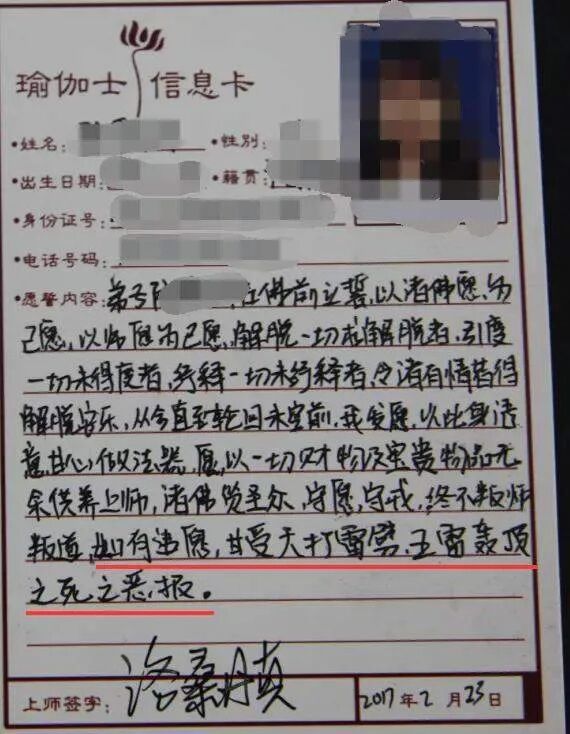 瑜伽士 信息卡
•姓名: •性别:
•出生日期: •籍贯:
•身份证号:
•电话号码:
•愿誓内容: 弟子 在佛前立誓,以诸佛愿为
己愿,以师愿为己愿,解脱一切求解脱者,引度
一切未得度者,纾释一切未纾释者,令诸有情皆得
解脱安乐,从今直至轮回未空前,我发愿,以此身语
意,甘心做法器,愿,以一切财物及宝贵物品无
余供养上师,诸佛 圣尔,守愿,守戒,终不叛师
叛道,如有违愿,甘受天打雷劈,五雷轰顶
之死之恶报。
上师签字: 洛桑丹真 2017年2月23日